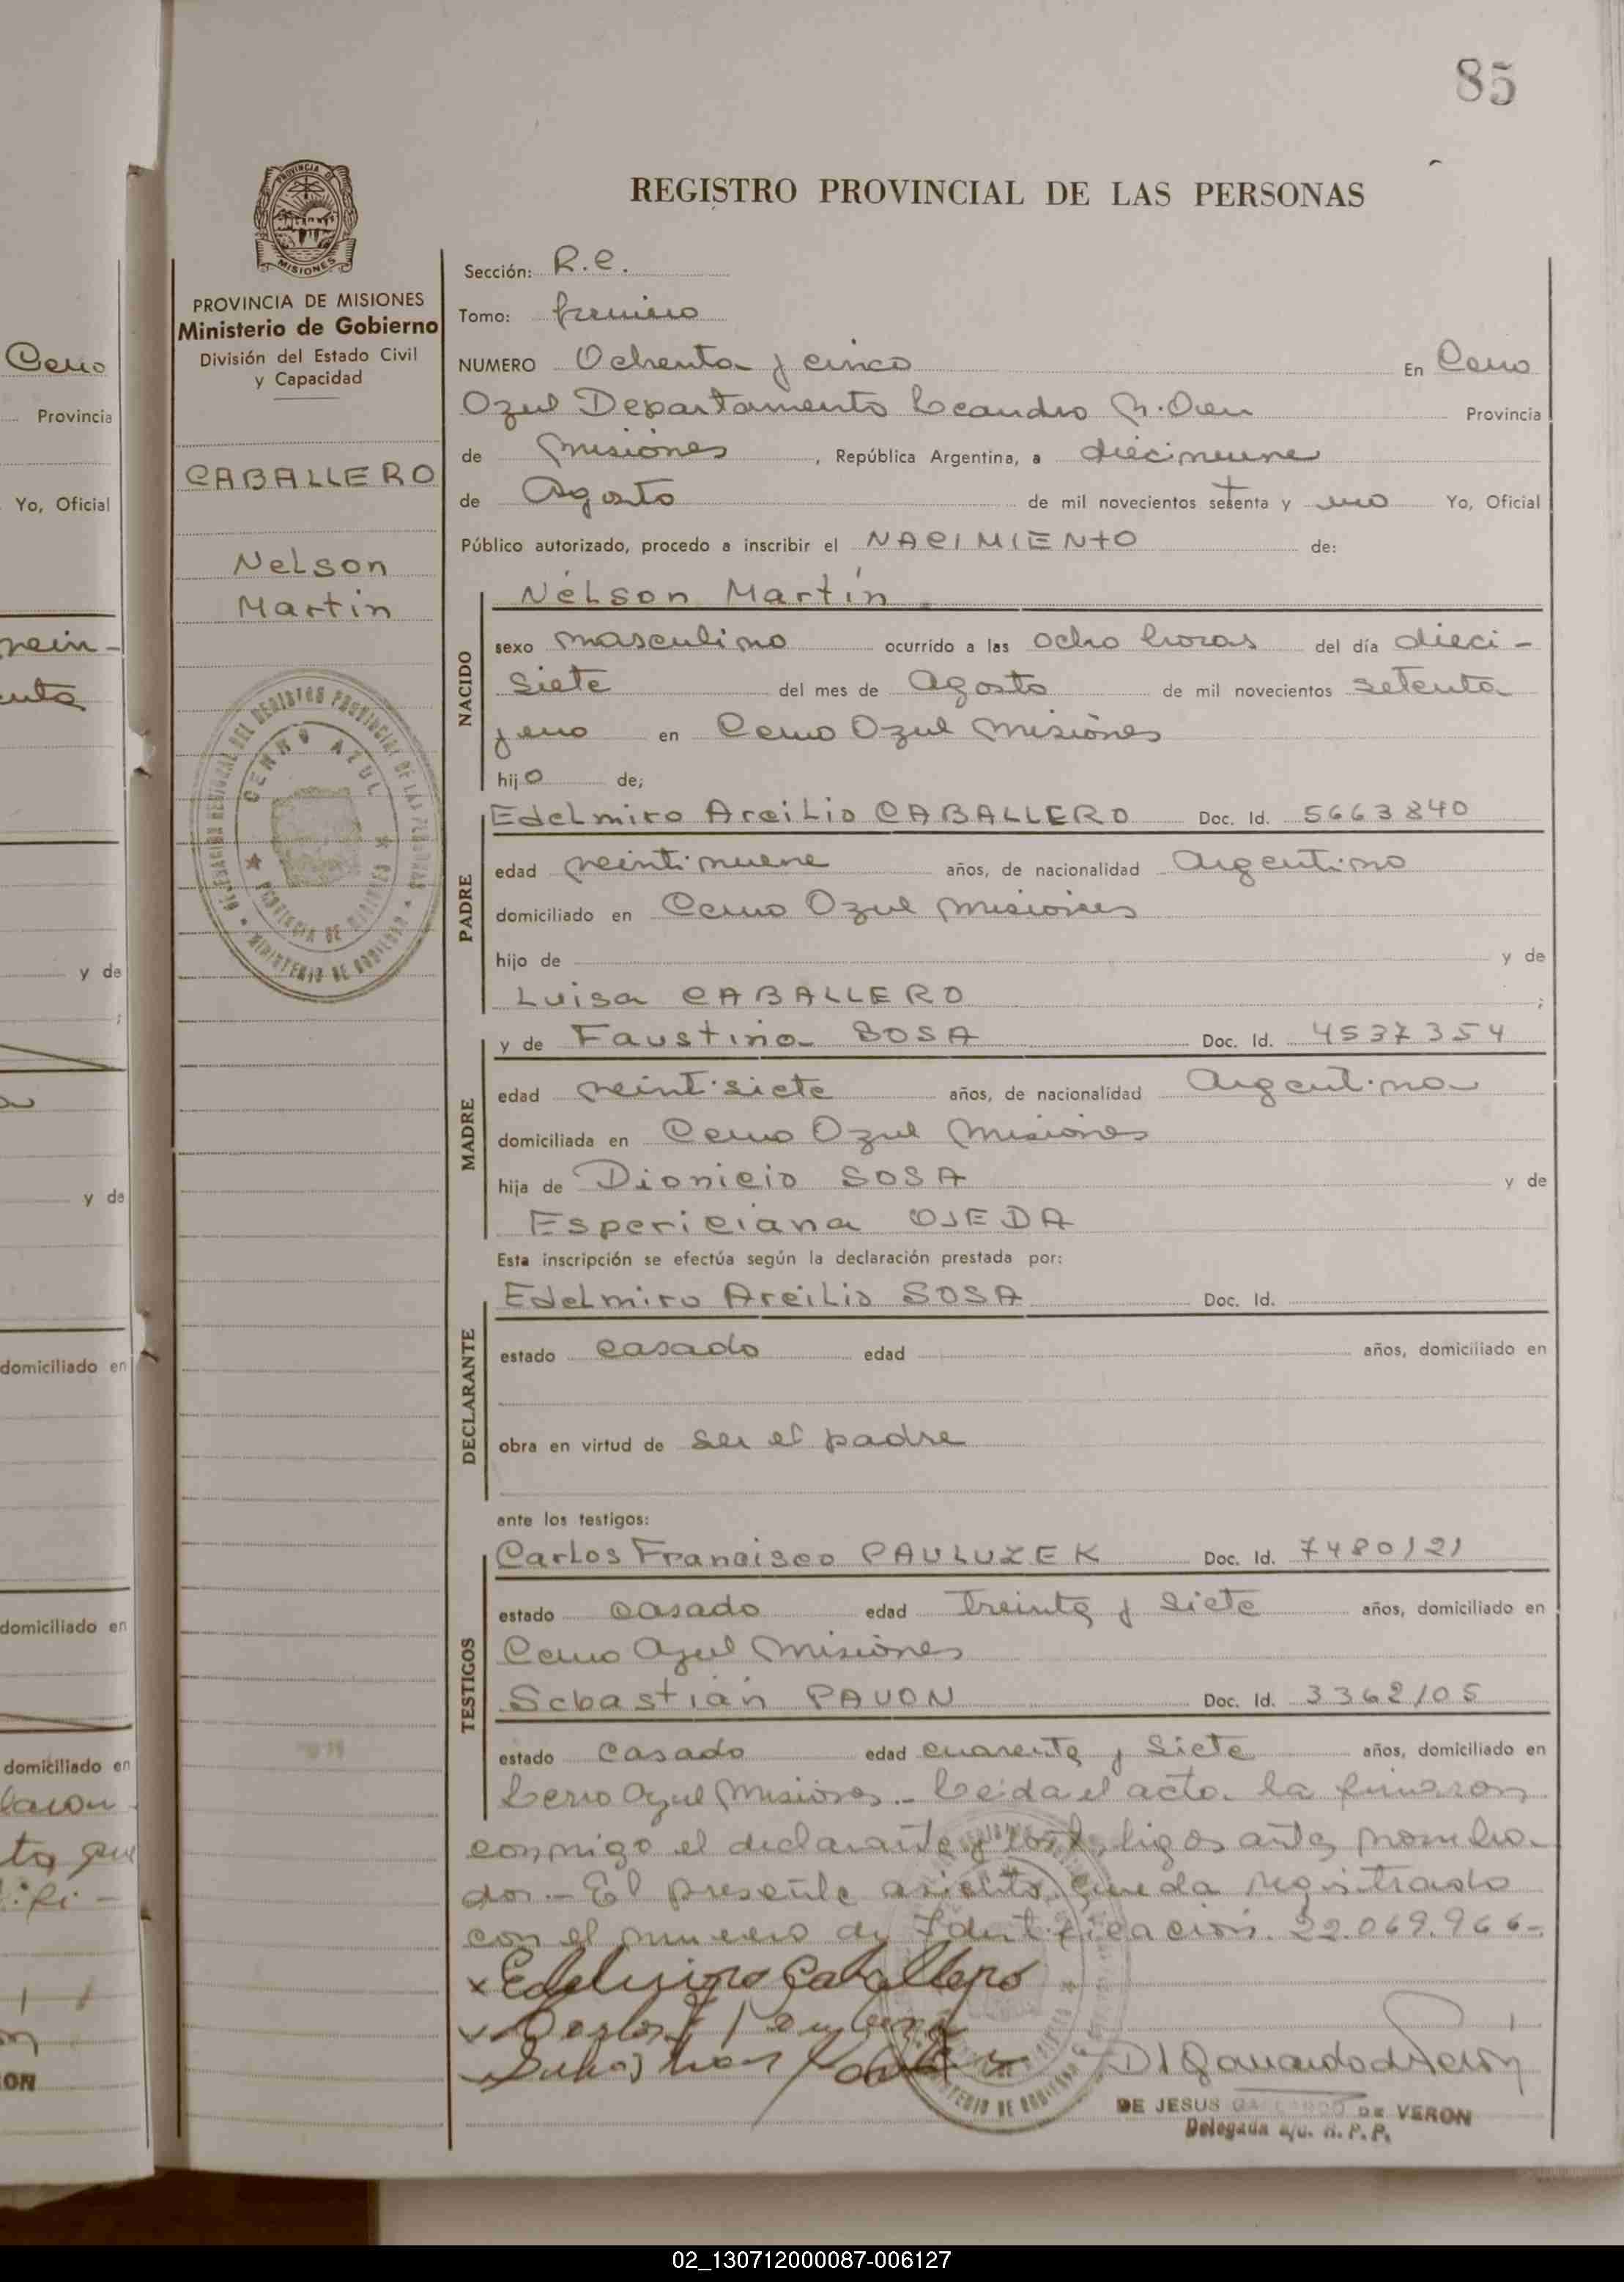 85
REGISTRO PROVINCIAL DE LAS PERSONAS
PROVINCIA DE
MISIONES
PROVINCIA DE MISIONES
Ministerio de Gobierno
División del Estado Civil
y Capacidad
CABALLERO
Nelson
Martin
CERRO AZUL
Sección: R.C.
Tomo: primero
NUMERO Ochenta y cinco En Cerro
Azul Departamento Leandro N. Alem Provincia
de Misiones, República Argentina, a diecinueve
de Agosto de mil novecientos setenta y uno Yo, Oficial
Público autorizado, procedo a inscribir el NACIMIENTO de:
NACIDO
Nélson Martín
sexo masculino ocurrido a las ocho horas del día dieci-
siete del mes de Agosto de mil novecientos setenta
y uno en Cerro Azul Misiones
hijo de;
PADRE
Edelmiro Arcilio CABALLERO Doc. Id. 5663840
edad veintinueve años, de nacionalidad Argentino
domiciliado en Cerro Azul Misiones
hijo de y de
Luisa CABALLERO ;
MADRE
y de Faustina SOSA Doc. Id. 4537354
edad veintisiete años, de nacionalidad Argentina
domiciliada en Cerro Azul Misiones
hija de Dionicio SOSA y de
Espericiana OJEDA
Esta inscripción se efectúa según la declaración prestada por:
DECLARANTE
Edelmiro Arcilio SOSA Doc. Id.
estado casado edad años, domiciliado en
obra en virtud de ser el padre
ante los testigos:
TESTIGOS
Carlos Francisco PAULUZEK Doc. Id. 7480121
estado casado edad treinta y siete años, domiciliado en
Cerro Azul Misiones
Sebastián PAVON Doc. Id. 3362105
estado casado edad cuarenta y siete años, domiciliado en
Cerro Azul Misiones.- Leida el acta la firmaron
conmigo el declarante y los testigos antes nombra-
dos.- El presente asiento queda registrado
con el numero de Identificacion. 22.069.966-
x Edelmiro Caballero
DE JESUS DE VERON
Delegada a/c. R.P.P.
Cerro
Provincia
Yo, Oficial
y de
;
y de
domiciliado en
domiciliado en
domiciliado en
02_130712000087-006127